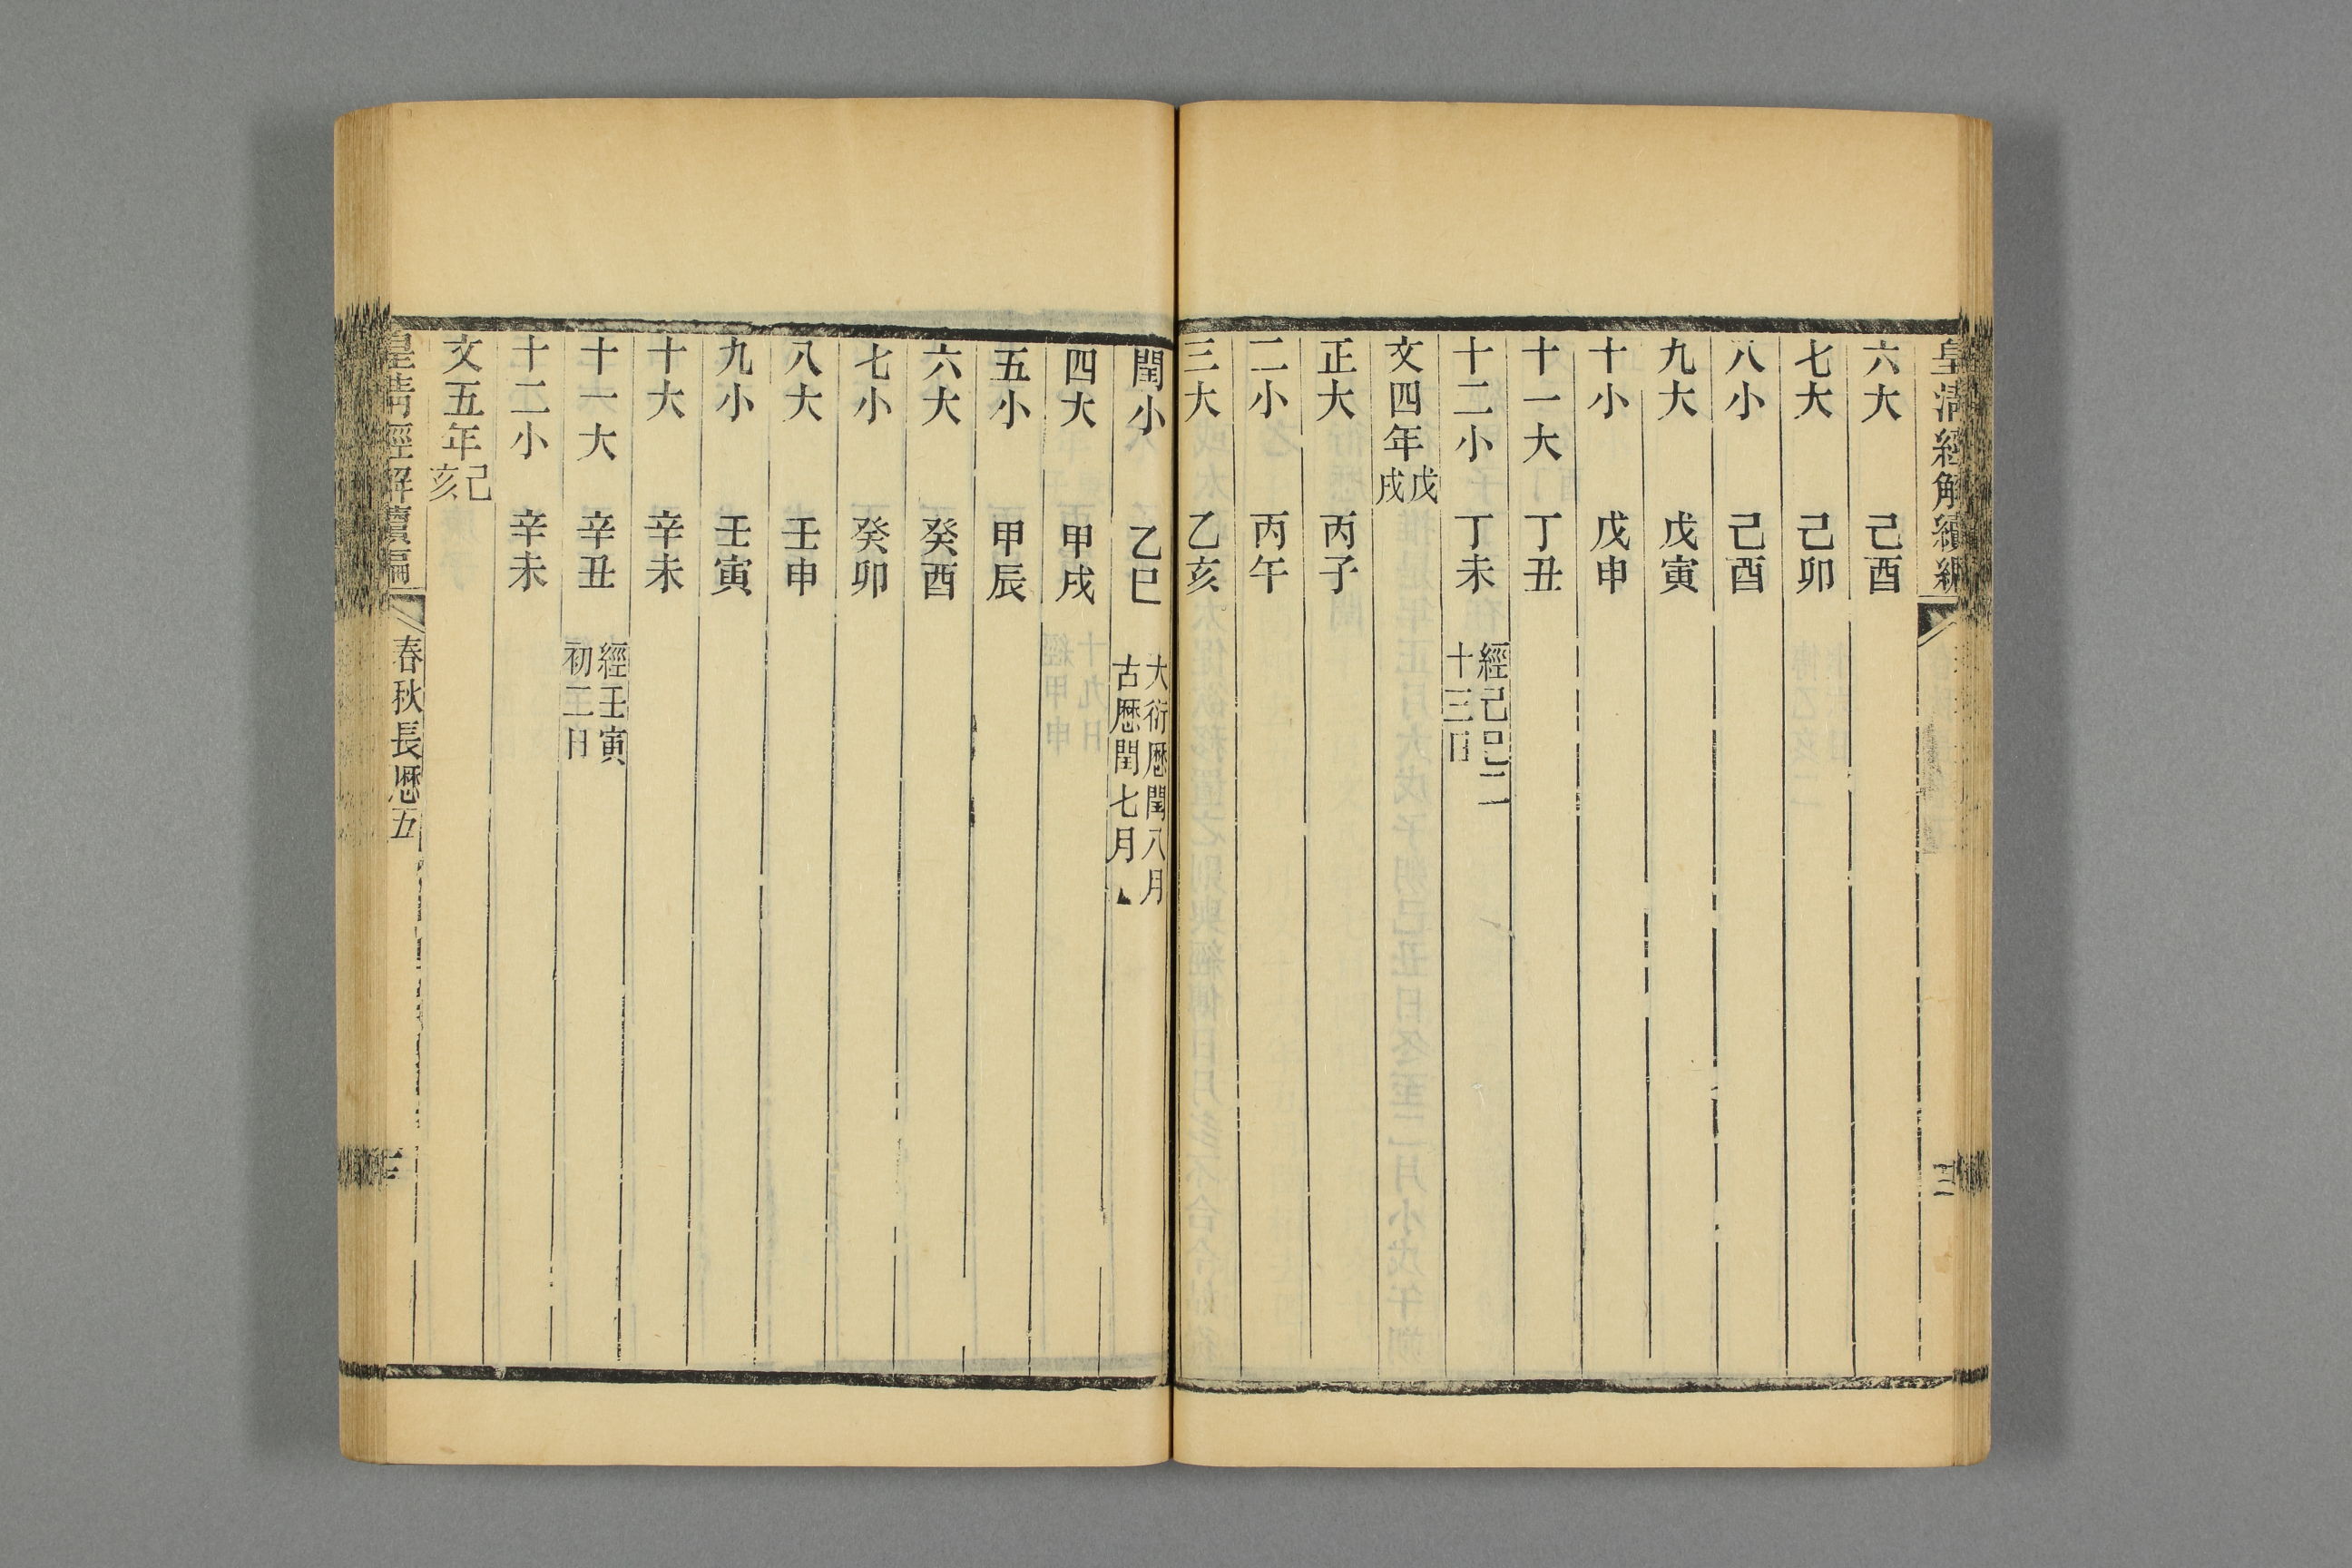 皇清經解續編
六大 己酉
七大 己卯
八小 己酉
九大 戊寅
十小 戊申
十一大 丁丑
十二小 丁未 經己巳二十三日
文四年戊戌
正大 丙子
二小 丙午
三大 乙亥
閏小 乙巳 大衍厯閏八月古厯閏七月
四大 甲戌
五小 甲辰
六大 癸酉
七小 癸卯
八大 壬申
九小 壬寅
十大 辛未
十一大 辛丑 經壬寅初二日
十二小 辛未
文五年己亥
皇清經解續編 春秋長厯五